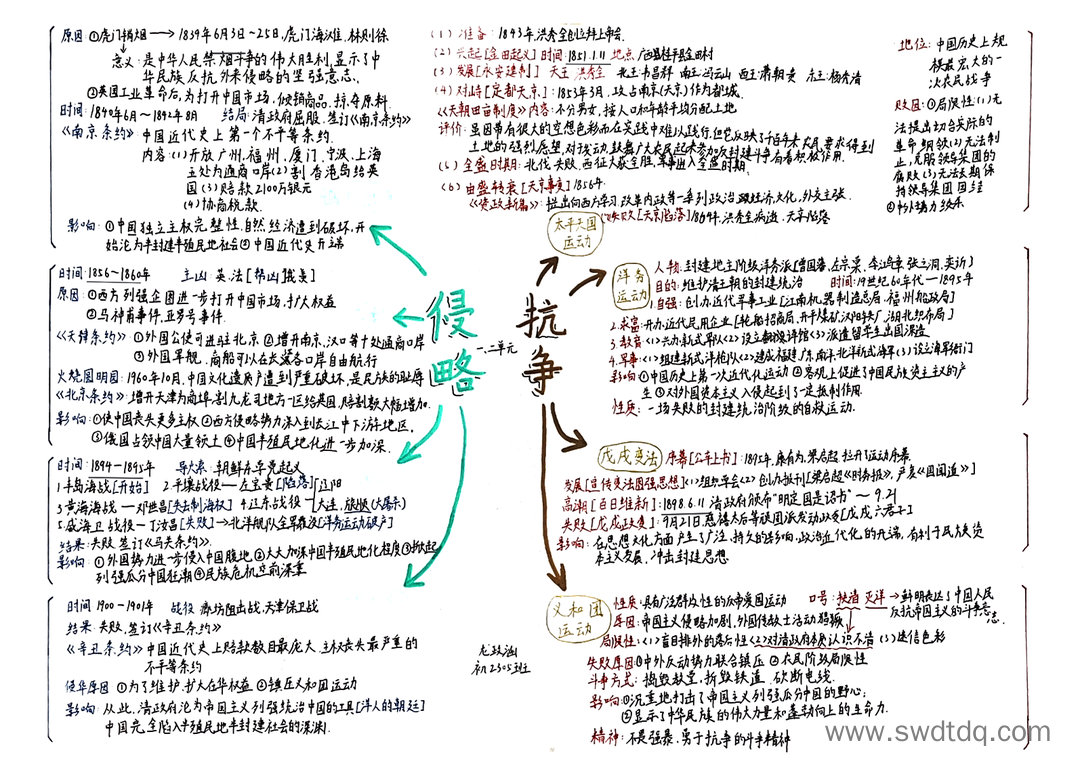 原因:①虎门销烟→1839年6月3日~25日,虎门海滩,林则徐
意义:是中华人民禁烟斗争的伟大胜利,显示了中
华民族反抗外来侵略的坚强意志.
②英国工业革命后,为打开中国市场,倾销商品,掠夺原料
时间:1840年6月~1842年8月 结局:清政府屈服,签订《南京条约》
《南京条约》中国近代史上第一个不平等条约.
内容:(1)开放广州,福州,厦门,宁波,上海
五处为通商口岸(2)割香港岛给英
国(3)赔款2100万银元
(4)协商税款.
影响:①中国独立主权完整性,自然经济遭到破坏,开
始沦为半封建半殖民地社会②中国近代史开端
时间:1856~1860年 主凶:英,法[帮凶俄美]
原因:①西方列强企图进一步打开中国市场,扩大权益
②马神甫事件,亚罗号事件.
《天津条约》①外国公使可进驻北京②增开南京,汉口等十处通商口岸
③外国军舰,商船可以在长江各口岸自由航行
火烧圆明园:1960年10月,中国文化遗产遭到严重破坏,是民族的耻辱
《北京条约》:增开天津为商埠,割九龙司地方一区给英国,赔割款大幅增加.
影响:①使中国丧失更多主权②西方侵略势力深入到长江中下游地区,
③俄国占领中国大量领土④中国半殖民地化进一步加深.
时间:1894—1895年 导火索:朝鲜东学党起义
1.丰岛海战[开始] 2.平壤战役—左宝贵[陷落]
3.黄海海战—邓世昌[失去制海权] 4.辽东战役—大连,旅顺(大屠杀)
5.威海卫战役—丁汝昌[失败]→北洋舰队全军覆没[洋务运动破产]
结果:失败,签订《马关条约》.
影响:①外国势力进一步侵入中国腹地②大大加深中国半殖民地化程度③掀起
列强瓜分中国狂潮④民族危机空前深重
时间1900—1901年 战役 廊坊阻击战,天津保卫战
结果:失败,签订《辛丑条约》
《辛丑条约》中国近代史上赔款数目最庞大,主权丧失最严重的
不平等条约
侵华原因 ①为了维护,扩大在华权益 ②镇压义和团运动
影响:从此,清政府沦为帝国主义列强统治中国的工具[洋人的朝廷]
中国完全陷入半殖民地半封建社会的深渊.
侵略
抗争
一.二单元
初2305班
(1)准备:1843年,洪秀全创立拜上帝会.
(2)兴起[金田起义]时间:1851.1.11 地点 广西桂平县金田村
(3)发展[永安建制] 天王 洪秀全 北王:韦昌辉 南王:冯云山 西王:萧朝贵 东王:杨秀清
(4)对峙[定都天京]:1853年3月,攻占南京(天京)作为都城.
《天朝田亩制度》内容:不分男女,按人口和年龄平均分配土地
评价:虽因带有很大的空想色彩而在实践中难以践行,但它反映了千百年来农民要求得到
土地的强烈愿望,对发动,鼓舞广大农民起来参加反封建斗争有着积极作用.
(5)全盛时期:北伐失败,西征大获全胜,军事进入全盛时期.
(6)由盛转衰[天京事变]1856年.
《资政新篇》:提出向西方学习,改革内政等一系列政治,经济,文化,外交主张.
失败[天京陷落]1864年,洪秀全病逝,天京陷落
太平天国
运动
地位:中国历史上规
模最宏大的一
次农民战争
败因:①局限性(1)无
法提出切合实际的
革命纲领(2)无法制
止,克服领导集团的
腐败(3)无法长期保
持领导集团团结
②中外势力绞杀
洋务
运动
人物:封建地主阶级洋务派[曾国藩,左宗棠,李鸿章,张之洞,奕䜣]
目的:维护清王朝的封建统治 时间:19世纪60年代—1895年
1.自强:创办近代军事工业[江南机器制造总局,福州船政局]
2.求富:开办近代民用企业[轮船招商局,开平煤矿,汉阳铁厂,湖北织布局]
3.教育:(1)兴办新式学校(2)设立翻译馆(3)派遣留学生出国深造
4.军事:(1)组建新式洋枪队(2)建成福建,广东,南洋,北洋新式海军(3)设立海军衙门
影响①中国历史上第一次近代化运动②客观上促进了中国民族资本主义的产
生③对外国资本主义入侵起到了一定抵制作用.
性质:一场失败的封建统治阶级的自救运动.
戊戌变法
序幕[公车上书]:1895年,康有为,梁启超拉开了运动序幕
发展[宣传变法图强思想](1)组织学会(2)创办报刊[梁启超《时务报》,严复《国闻报》]
高潮[百日维新]:1898.6.11清政府颁布“明定国是诏书”~9.21
失败[戊戌政变]:9月21日慈禧太后等顽固派发动政变[戊戌六君子]
影响:在思想文化方面产生了广泛,持久的影响,政治近代化的开端,有利于民族资
本主义发展,冲击封建思想.
义和团
运动
性质:具有广泛群众性的反帝爱国运动 口号:扶清灭洋→鲜明表达了中国人民
反抗帝国主义的斗争意志.
原因:帝国主义侵略加剧,外国传教士活动猖獗
局限性:(1)盲目排外的落后性(2)对清政府本质认识不清(3)迷信色彩
失败原因①中外反动势力联合镇压 ②农民阶级局限性
斗争方式:捣毁教堂,拆毁铁道,砍断电线.
影响:①沉重地打击了帝国主义列强瓜分中国的野心;
②显示了中华民族的伟大力量和蓬勃向上的生命力.
精神:不畏强暴,勇于抗争的斗争精神
www.swdtdq.com